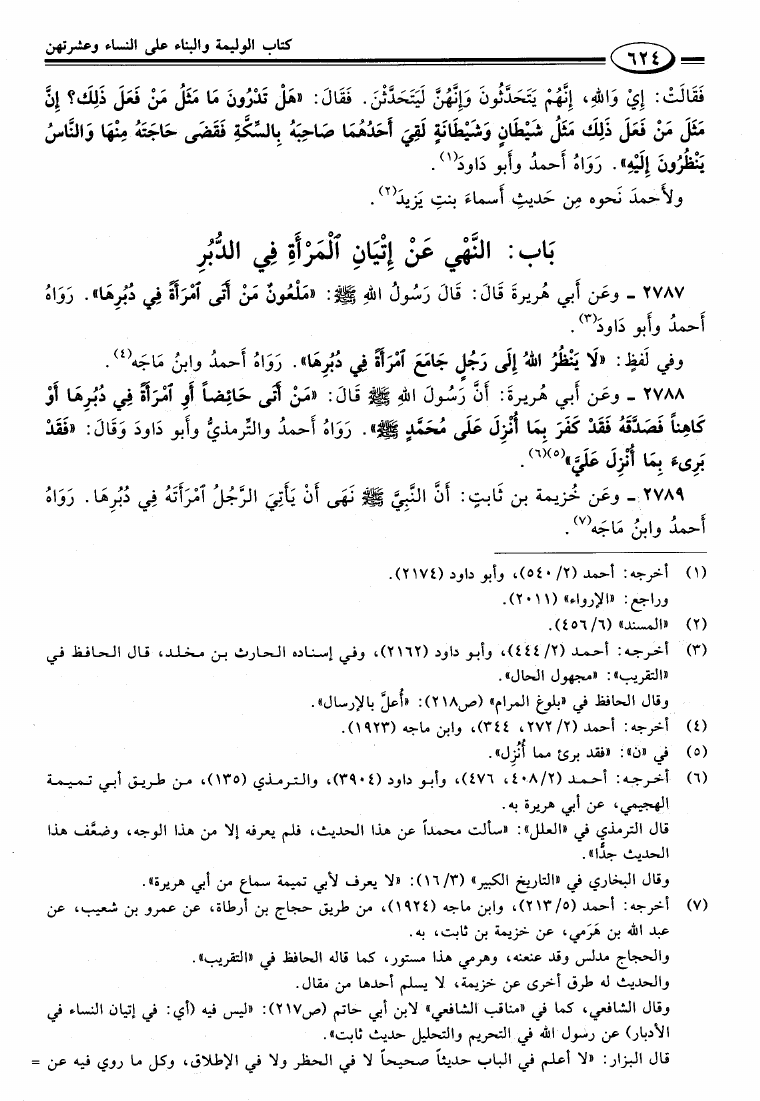 كتاب الوليمة والبناء على النساء وعشرتهن
٦٢٤
فَقَالَتْ: إِيْ وَاللهِ، إِنَّهُمْ يَتَحَدَّثُونَ وَإِنَّهُنَّ لَيَتَحَدَّثْنَ. فَقَالَ: «هَلْ تَدْرُونَ مَا مَثَلُ مَنْ فَعَلَ ذَلِكَ؟ إِنَّ
مَثَلَ مَنْ فَعَلَ ذَلِكَ مَثَلُ شَيْطَانٍ وَشَيْطَانَةٍ لَقِيَ أَحَدُهُمَا صَاحِبَهُ بِالسِّكَّةِ فَقَضَى حَاجَتَهُ مِنْهَا وَالنَّاسُ
يَنْظُرُونَ إِلَيْهِ». رَوَاهُ أَحمدُ وأَبو دَاودَ(١).
ولأحمدَ نَحوه مِن حَديثِ أسماءَ بنتِ يَزيدَ(٢).
بَاب: النَّهْيِ عَنْ إِتْيَانِ ٱلْمَرْأَةِ فِي الدُّبُرِ
٢٧٨٧ - وعَن أبي هُريرةَ قَالَ: قَالَ رَسُولُ اللهِ ﷺ: «مَلْعُونٌ مَنْ أَتَى ٱمْرَأَةً فِي دُبُرِهَا». رَوَاهُ
أَحمدُ وأَبو دَاودَ(٣).
وفي لَفظٍ: «لَا يَنْظُرُ اللهُ إِلَى رَجُلٍ جَامَعَ ٱمْرَأَةً فِي دُبُرِهَا». رَوَاهُ أَحمدُ وابنُ مَاجَه(٤).
٢٧٨٨ - وعَن أبي هُريرةَ: أَنَّ رَسُولَ اللهِ ﷺ قَالَ: «مَنْ أَتَى حَائِضاً أَوِ ٱمْرَأَةً فِي دُبُرِهَا أَوْ
كَاهِناً فَصَدَّقَهُ فَقَدْ كَفَرَ بِمَا أُنْزِلَ عَلَى مُحَمَّدٍ ﷺ». رَوَاهُ أَحمدُ والتِّرمذيُّ وأَبو دَاودَ وَقَالَ: «فَقَدْ
بَرِىءَ بِمَا أُنْزِلَ عَلَيَّ»(٥)(٦).
٢٧٨٩ - وعَن خُزيمةَ بن ثَابتٍ: أَنَّ النَّبِيَّ ﷺ نَهَى أَنْ يَأْتِيَ الرَّجُلُ ٱمْرَأَتَهُ فِي دُبُرِهَا. رَوَاهُ
أَحمدُ وابنُ مَاجَه(٧).
(١) أخرجه: أحمد (٥٤٠/٢)، وأبو داود (٢١٧٤).
وراجع: «الإرواء» (٢٠١١).
(٢) «المسند» (٤٥٦/٦).
(٣) أخرجه: أحمد (٤٤٤/٢)، وأبو داود (٢١٦٢)، وفي إسناده الحارث بن مخلد، قال الحافظ في
«التقريب»: «مجهول الحال».
وقال الحافظ في «بلوغ المرام» (ص٢١٨): «أُعلَّ بالإرسال».
(٤) أخرجه: أحمد (٢٧٢/٢، ٣٤٤)، وابن ماجه (١٩٢٣).
(٥) في «ن»: «فقد برئ مما أُنْزِل».
(٦) أخرجه: أحمد (٤٠٨/٢، ٤٧٦)، وأبو داود (٣٩٠٤)، والترمذي (١٣٥)، من طريق أبي تميمة
الهجيمي، عن أبي هريرة به.
قال الترمذي في «العلل»: «سألت محمداً عن هذا الحديث، فلم يعرفه إلا من هذا الوجه، وضعَّف هذا
الحديث جدًّا».
وقال البخاري في «التاريخ الكبير» (١٦/٣): «لا يعرف لأبي تميمة سماع من أبي هريرة».
(٧) أخرجه: أحمد (٢١٣/٥)، وابن ماجه (١٩٢٤)، من طريق حجاج بن أرطاة، عن عمرو بن شعيب، عن
عبد الله بن هَرَمي، عن خزيمة بن ثابت، به.
والحجاج مدلس وقد عنعنه، وهرمي هذا مستور، كما قاله الحافظ في «التقريب».
والحديث له طرق أخرى عن خزيمة، لا يسلم أحدها من مقال.
وقال الشافعي، كما في «مناقب الشافعي» لابن أبي حاتم (ص٢١٧): «ليس فيه (أي: في إتيان النساء في
الأدبار) عن رسول الله في التحريم والتحليل حديث ثابت».
قال البزار: «لا أعلم في الباب حديثاً صحيحاً لا في الحظر ولا في الإطلاق، وكل ما روي فيه عن =